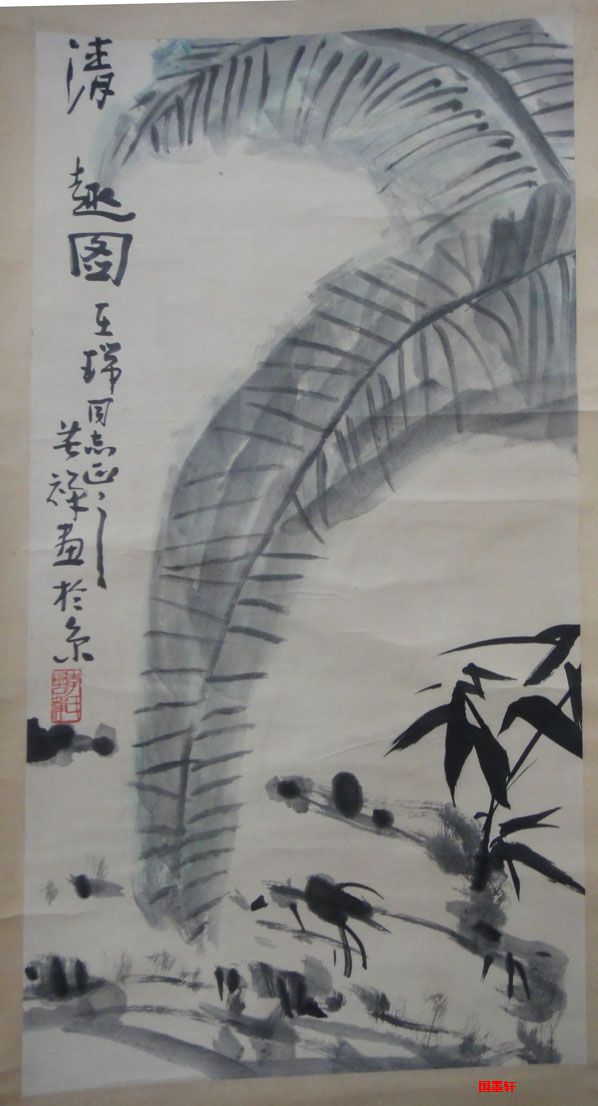 清趣图
亚瑞同志正之
苦禅画于京
国墨轩